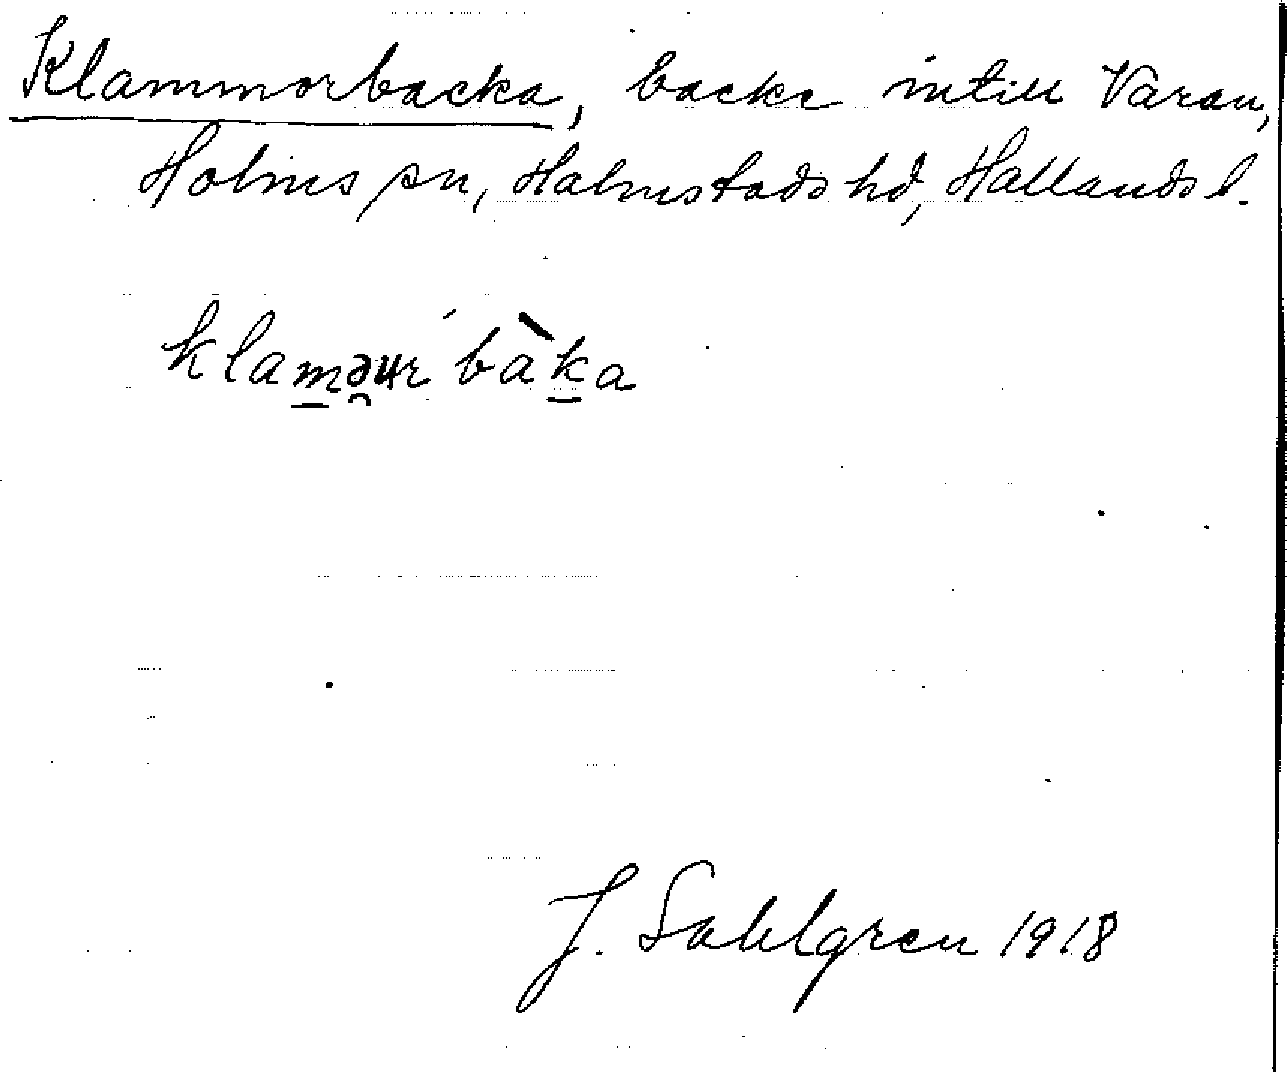 Klammorbacka, backe intill Varau,
Holms sn, Halmstads hd, Hallands l.
klaməur bàka
J. Sahlgren 1918